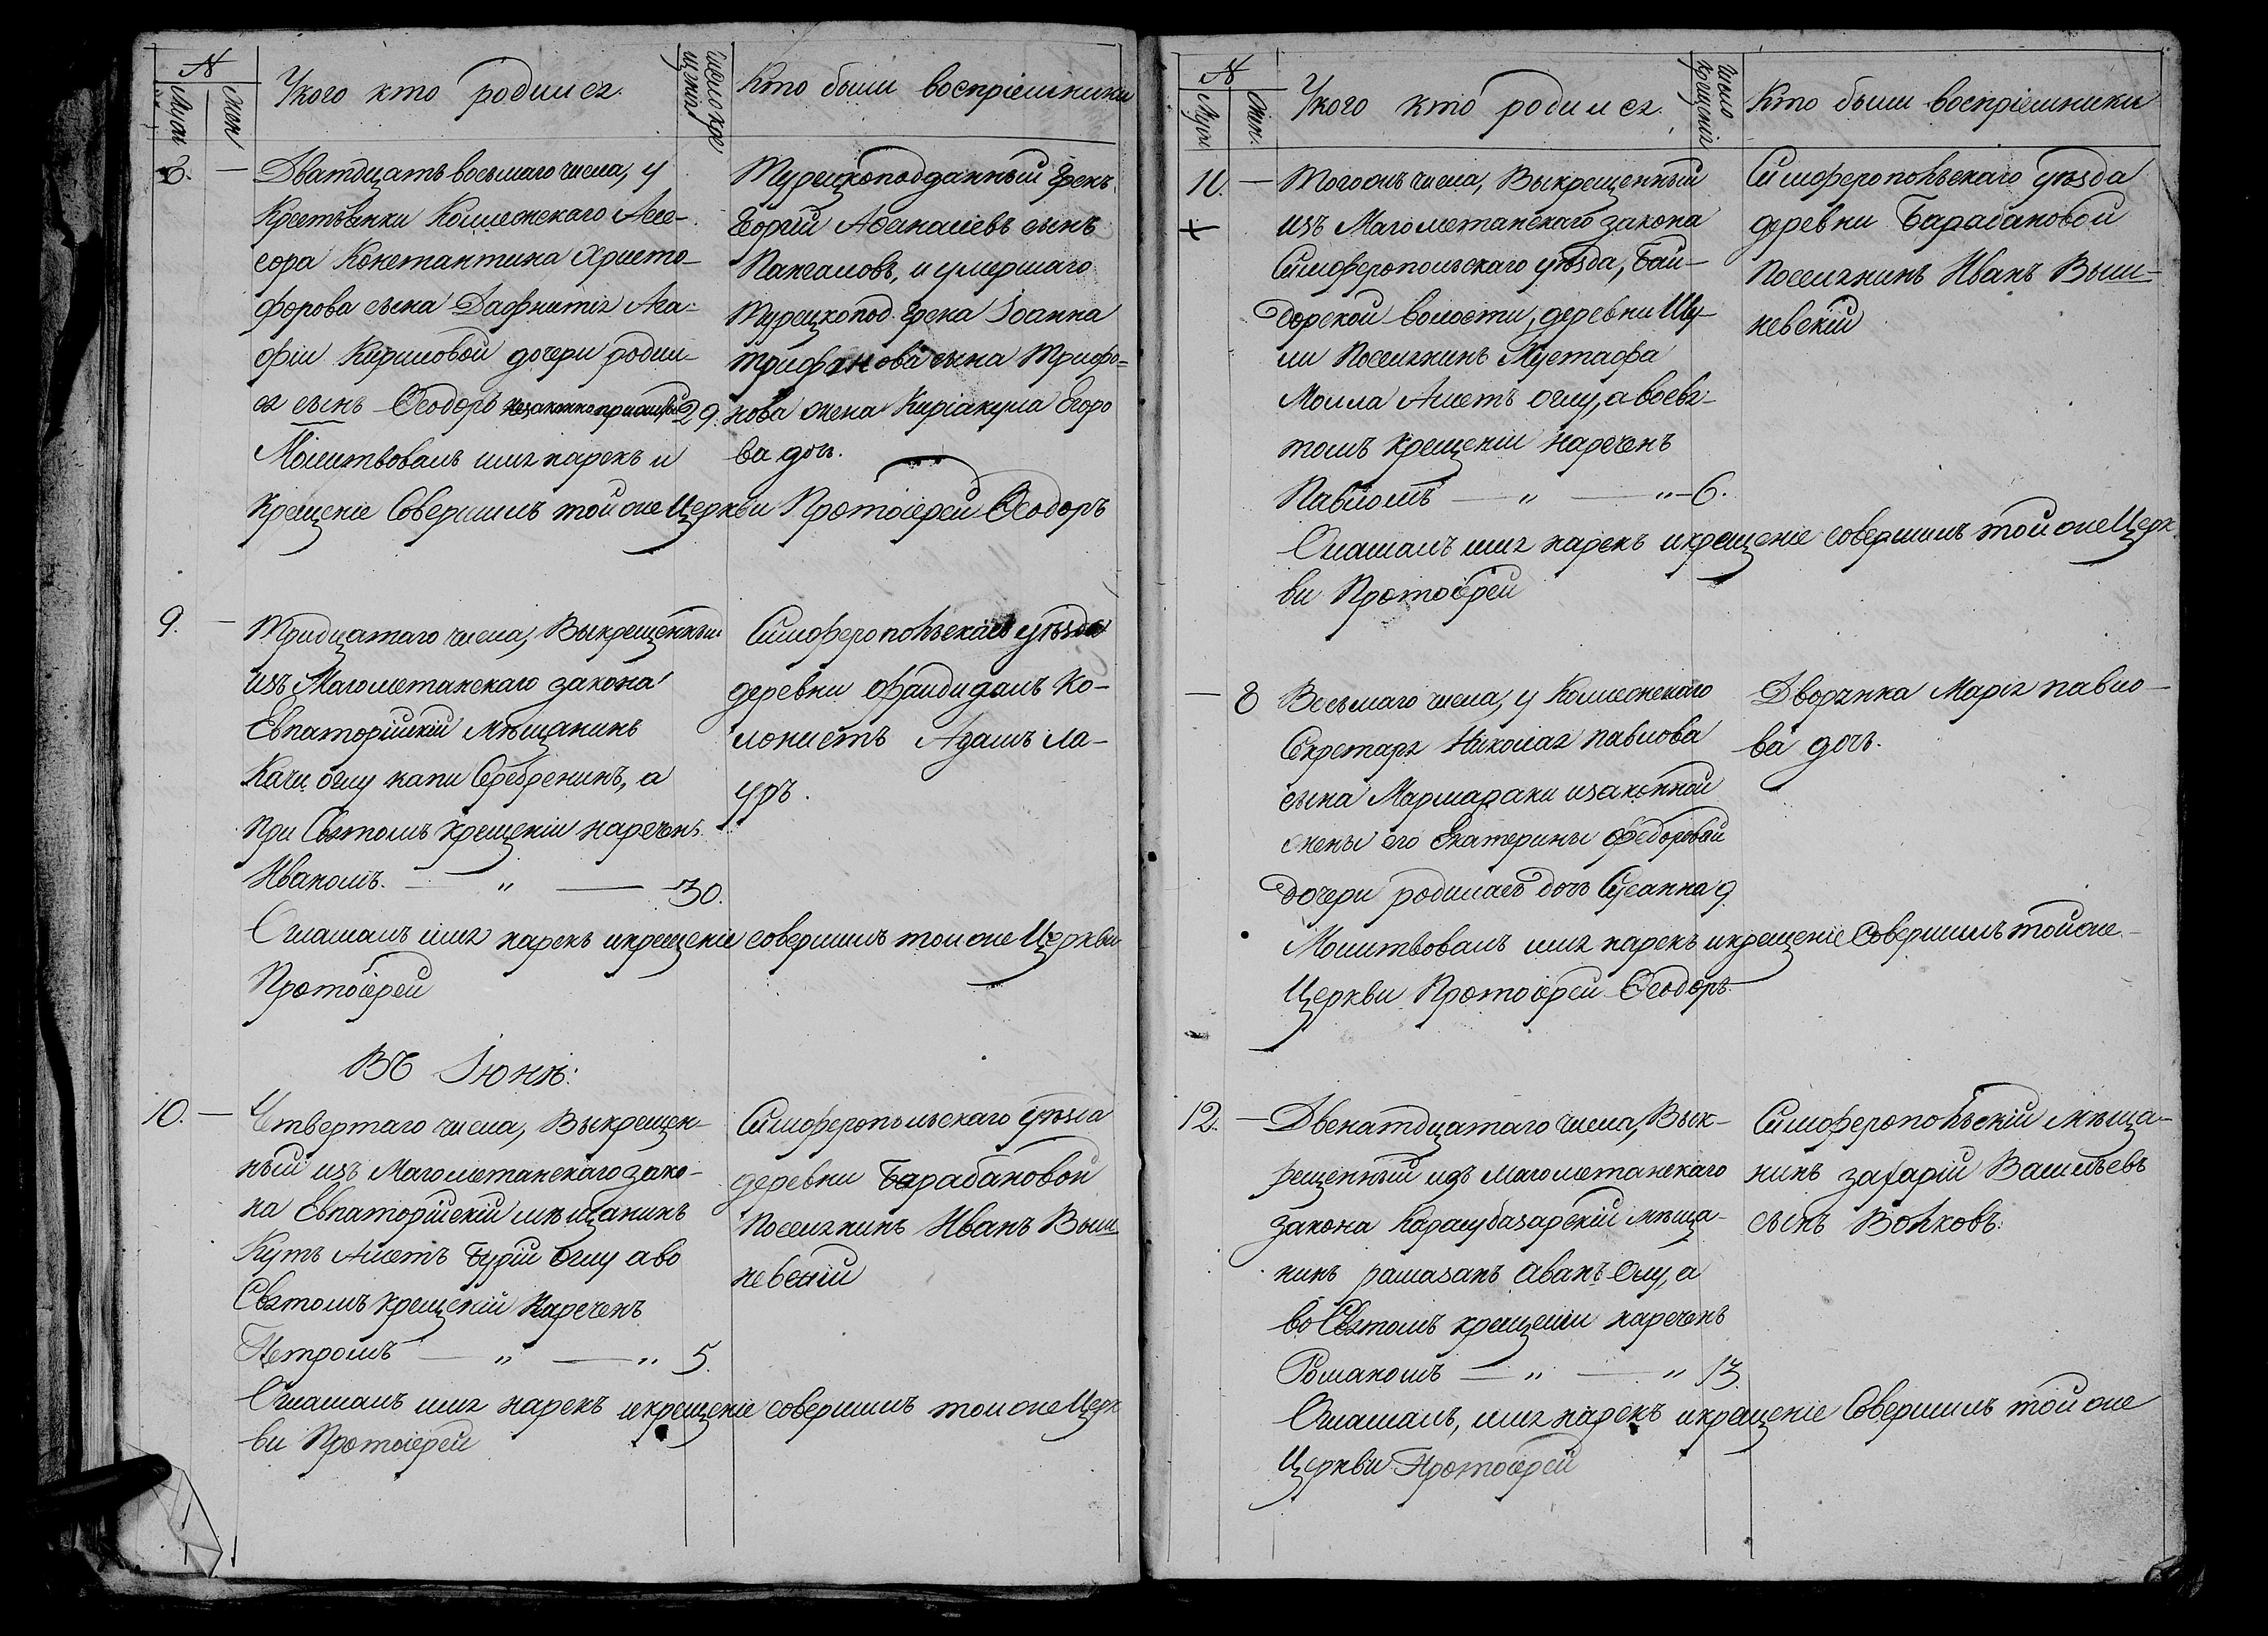 №
Муж
Жен
У кого кто родился.
число кре
щенія
Кто были воспріемники
8.
Дватдцать восьмаго числа, у
Крестьянки Коллежскаго Ассе-
сора Константина Христо-
форова сына Дафнитія Ага-
фіи Кириловой дочери родил-
ся сынъ Ѳеодоръ незаконноприжитый 29.
Молитвовалъ имя нарекъ и
крещеніе Совершилъ той же Церкви Протоіерей Ѳеодоръ
Турецкоподданный Грекъ
Георгій Афанасіевъ сынъ
Паксамовъ, и умершаго
Турецкопод. Грека Іоанна
Трифонова сына Трифо-
нова жена Киріакула Егоро
ва доч.
9.
Тридцатаго числа, Выкрещенный
изъ Магометанскаго закона
Евпаторійскій Мѣщанинъ
Качи оглу капи Серебренинъ, а
при Святомъ крещеніи нареченъ
Иваномъ. — " — 30.
Оглашалъ имя нарекъ и крещеніе совершилъ той же Церкви
Протоіерей
Симферопольскаго уѣзда
деревни Фриндидалъ Ко-
лонистъ Адамъ Ла-
уръ.
Въ Іюнѣ:
10.
Четвертаго числа, Выкрещен-
ный изъ Магометанскаго зако-
на Евпаторійскій мѣщанинъ
Кутъ Аметъ Бурій Оглу а во
Святомъ крещеній Нареченъ
Петромъ — " — " 5.
Оглашалъ имя нарекъ и крещеніе совершилъ той же Церк
ви Протоіерей
Симферопольскаго уѣзда
деревни Барабановой
Поселянинъ Иванъ Выш-
невскій
№
Муж
Жен.
У кого кто родился.
Число
крещенія
Кто были воспріемники
11.
Тогожъ числа, Выкрещенный
изъ Магометанскаго закона
Симферопольскаго уѣзда, Бай-
дорской волости, деревни Шу-
ли Поселянинъ Мустафа
Молла Аметъ оглу, а во свя-
томъ крещеніи нареченъ
Павломъ — " — " — 6.
Оглашалъ имя нарекъ и крещеніе совершилъ той же Церк
ви Протоіерей
Симферопольскаго уѣзда
деревни Барабановой
Поселянинъ Иванъ Выш-
невскій
8
Восьмаго числа, у Коллежскаго
Секретаря Николая Павлова
сына Мармараки и законной
жены его Екатерины Федоровой
дочери родилась дочь Сусанна 9.
Молитвовалъ имя нарекъ и крещеніе Совершилъ той же
Церкви Протоіерей Ѳеодоръ
Дворянка Марія Павло-
ва доч.
12.
Двенатдцатаго числа, Вык-
рещенный изъ Магометанскаго
закона Карасубазарскій мѣща-
нинъ рамазанъ Аванъ Оглу, а
во Святомъ крещеніи нареченъ
Романомъ — " — " 13.
Оглашалъ, имя нарекъ и крещеніе Совершилъ той же
Церкви Протоіерей
Симферопольскій мѣща-
нинъ Захарій Васильевъ
сынъ Волковъ: